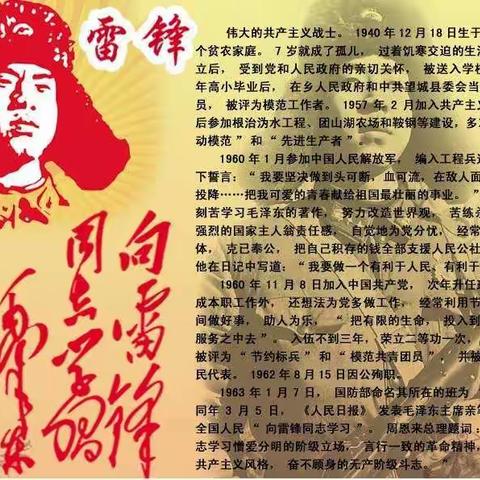 雷锋
向雷锋
同志学习
毛泽东
伟大的共产主义战士。 1940年12月18日生于
个贫农家庭。 7岁就成了孤儿， 过着饥寒交迫的生
立后， 受到党和人民政府的亲切关怀， 被送入学
年高小毕业后， 在乡人民政府和中共望城县委会当
员， 被评为模范工作者。 1957 年 2 月加入共产主
后参加根治沩水工程、团山湖农场和鞍钢等建设，多
动模范 ” 和 “ 先进生产者 ”
1960年1月参加中国人民解放军， 编入工程兵
下誓言： “ 我要坚决做到头可断，血可流，在敌人面
投降……把我可爱的青春献给祖国最壮丽的事业。 ”
刻苦学习毛泽东的著作， 努力改造世界观， 苦练
强烈的国家主人翁责任感， 自觉地为党分忧， 经常
体， 克已奉公， 把自己积存的钱全部支援人民公社
他在日记中写道： “ 我要做一个有利于人民，有利于
1960 年 11 月 8 日加入中国共产党， 次年升任
成本职工作外， 还想法为党多做工作， 经常利用节
间做好事， 助人为乐， “ 把有限的生命， 投入到
服务之中去 ” 。 入伍不到三年，荣立二等功一次，
被评为 “ 节约标兵 ” 和 “ 模范共青团员 ” ，并被
民代表。 1962年8月15日因公殉职。
1963 年 1 月 7 日， 国防部命名其所在的班为
同年 3 月 5 日， 《人民日报》 发表毛泽东主席亲
全国人民 “ 向雷锋同志学习 ” 。 周恩来总理题词：
志学习憎爱分明的阶级立场， 言行一致的革命精神，
共产主义风格， 奋不顾身的无产阶级斗志。